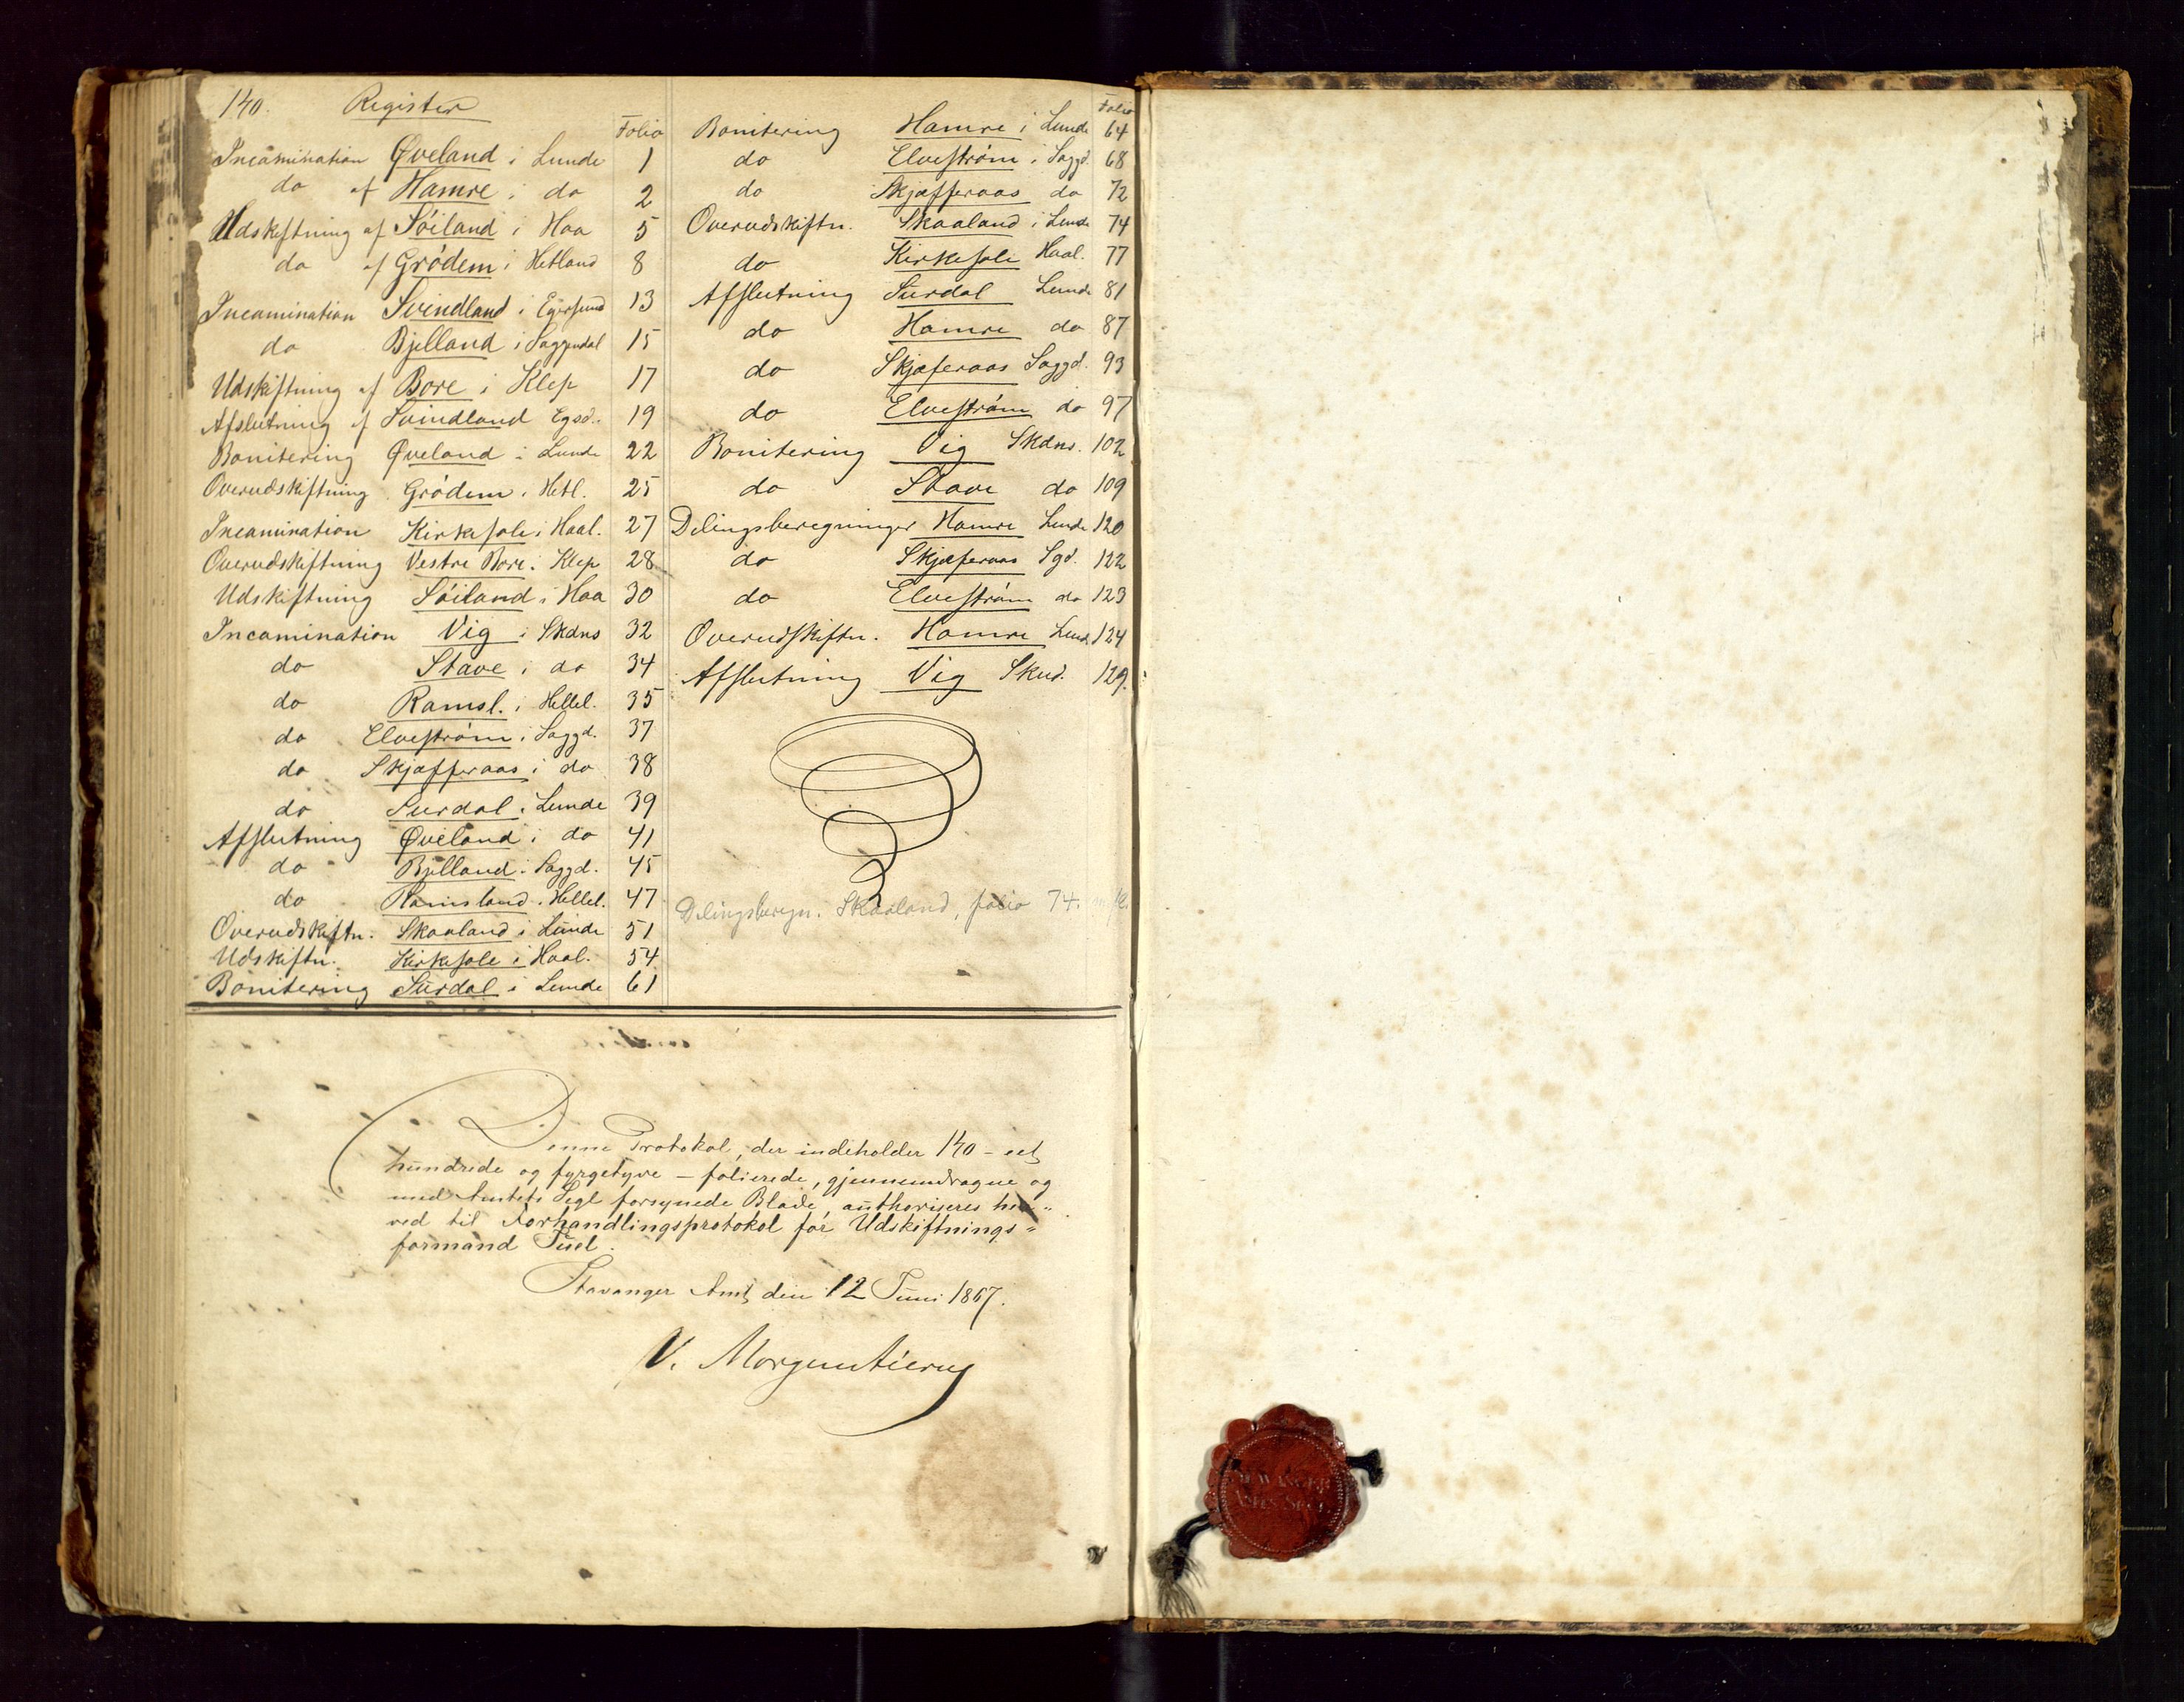 140. Register
Folio
Incamination Øveland i Lunde 1
do af Hamre i do 2
Udskiftning af Söiland i Haa 5
do af Grödem i Hetland 8
Incamination Svindland i Egersund 13
do Bjelland i Soggendal 15
Udskiftning af Bore i Klep 17
Afslutning af Svindland Egsd. 19
Bonitering Øveland i Lunde 22
Overudskiftning Grödem i Hetl. 25
Incamination Kirkesole i Haal. 27
Overudskiftning Vestre Bore i Klep 28
Udskiftning Söiland i Haa 30
Incamination Vig i Skdns 32
do Stave i do 34
do Ramsl. i Hellel. 35
do Elveström i Soggd. 37
do Skjæfferaas i do 38
do Surdal i Lunde 39
Afslutning Øveland i do 41
do Bjelland i Soggd. 45
do Ramsland i Hellel. 47
Overudskiftn. Skaaland i Lunde 51
Udskiftn. Kirkesole i Haal. 54
Bonitering Surdal i Lunde 61
Folio
Bonitering Hamre i Lunde 64
do Elveström i Soggd. 68
do Skjæfferaas do 72
Overudskiftn. Skaaland i Lunde 74
do Kirkesole Haal. 77
Afslutning Surdal Lunde 81
do Hamre do 87
do Skjæferaas Soggd. 93
do Elveström do 97
Bonitering Vig Skdns. 102
do Stave do 109
Delingsberegninger Hamre Lunde 120
do Skjæferaas Sgd. 122
do Elveström do 123
Overudskiftn. Hamre Lund. 124
Afslutning Vig Skud. 129.
Delingsberegn. Skaaland, folio 74.
Denne Protokol, der indeholder 140 – eet
hundrede og fyrgetyve – folierede, gjennemdragne og
med Amtets Segl forsynede Blade, authoriseres her-
ved til Forhandlingsprotokol for Udskiftnings-
formand Tuel.
Stavanger Amt, den 12 Juni 1867.
V. Morgenstierne